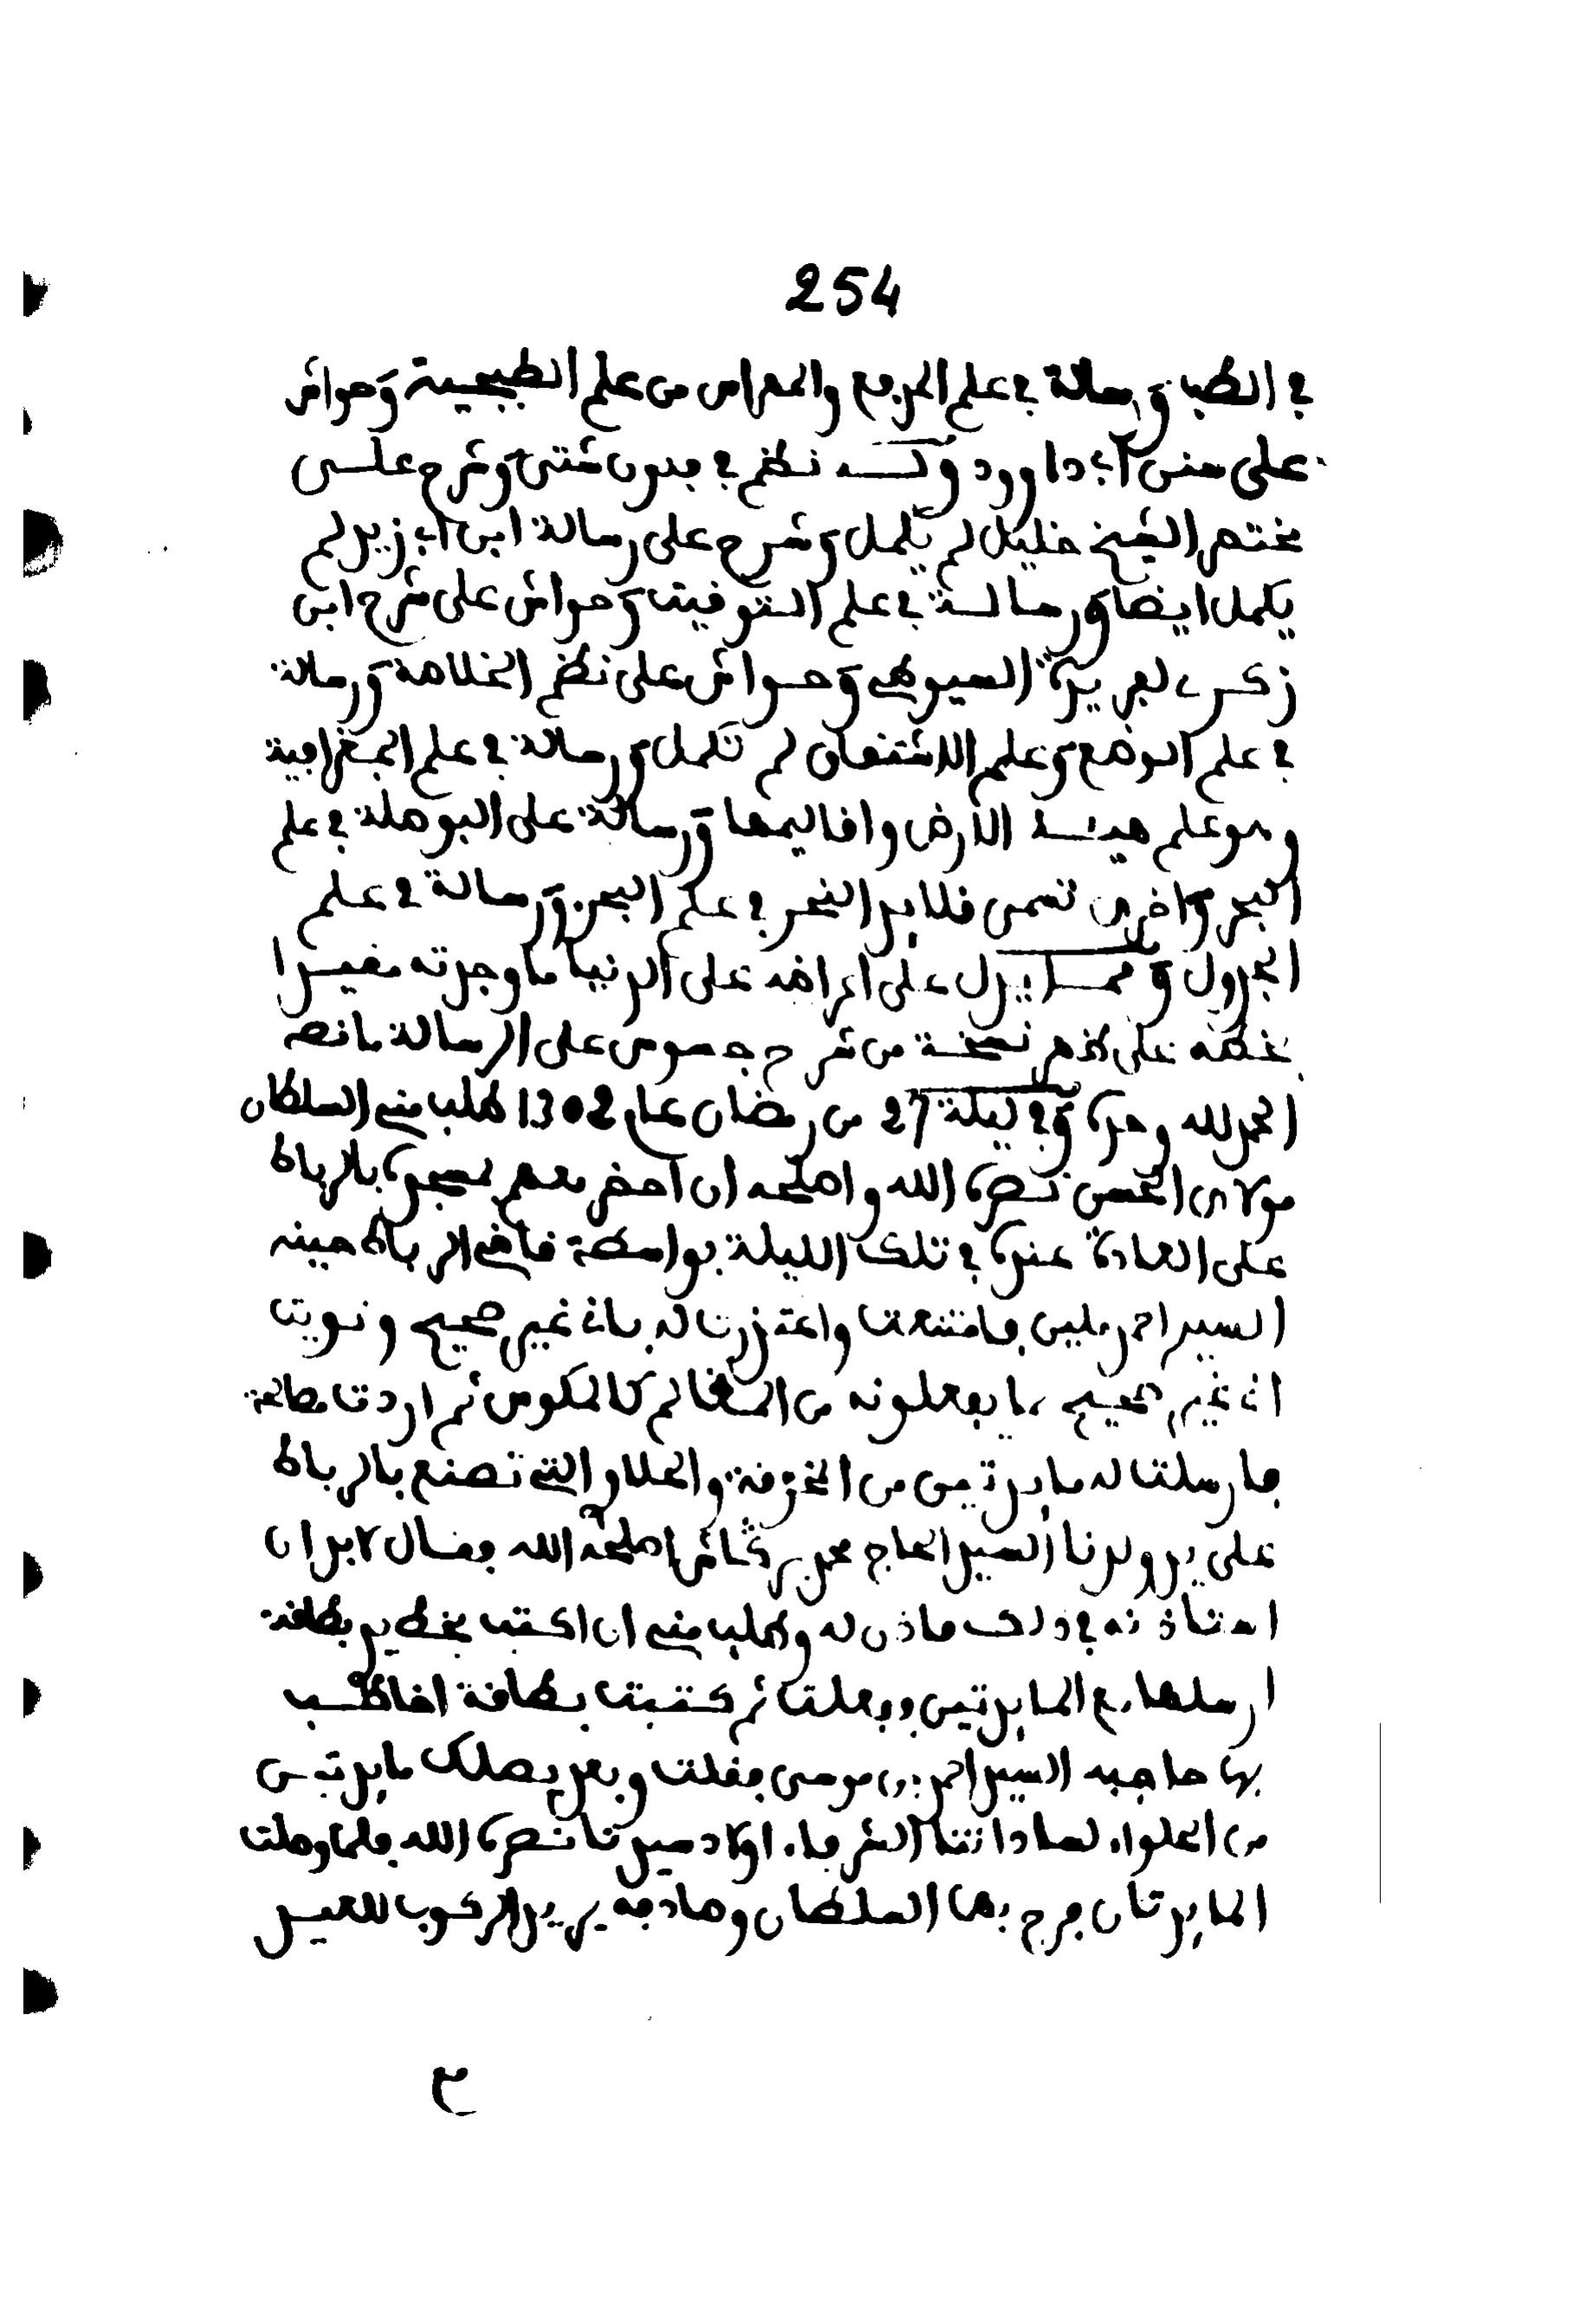 254
في الطب ورسالة في علم المدفع والمهراس من علم الطبجية وحواش
على سنن أبي داوود وله نظم في فنون شتى وشرح على
مختصر الشيخ خليل لم يكمل وشرح على رسالة ابن أبي زيد لم
يكمل ايضا ورسالة في علم التوقيت وحواش على شرح ابن
زكري لفريدة السيوطي وحواش على نظم الخلاصة ورسالة
في علم الوضع وعلم الاشتقاق لم تكمل ورسالة في علم الجغرافية
وهو علم هيئة الارض واقاليمها ورسالة على البوصلة في علم
البحر واخرى تسمى قلايد النحر في علم البحر ورسالة في علم
الجدول ومما يدل على اعراضه على الدنيا ما وجدته مقيدا
بخطه على ظهر نسخة من شرح جسوس على الرسالة ما نصه
الحمد لله وحده وفي ليلة 27 من رمضان عام 1302 طلب مني السلطان
مولاي الحسن نصره الله واصلحه ان احضر معهم لسجوده بالرباط
على العادة عنده في تلك الليلة بواسطة قاضي الرباط حينه
السيد احمد ملين فامتنعت واعتذرت له باني غير صحيح ونويت
اني غير صحيح ما يفعلونه من المظالم كالمكوس ثم اردت مصالحة
فارسلت له مايدتين من الخزفة والحلاو التي تصنع بالرباط
على يد ولدنا السيد الحاج محمد بركاش اصلحه الله فقال لابد ان
استاذنه في ذلك فاذن له وطلب مني ان اكتب بخط يد بطاقة
ارسلها مع المايدتين ففعلت ثم كتبت بطاقة اخاطب
بها حاجبه السيد احمد بن موسى فقلت وبعد يصلك مايدتين
من الحلواء لساداتنا الشرفاء اولاد سيدنا نصره الله فلما وصلت
المايدتان فرح بها السلطان وصادفه يريد الركوب للعيد